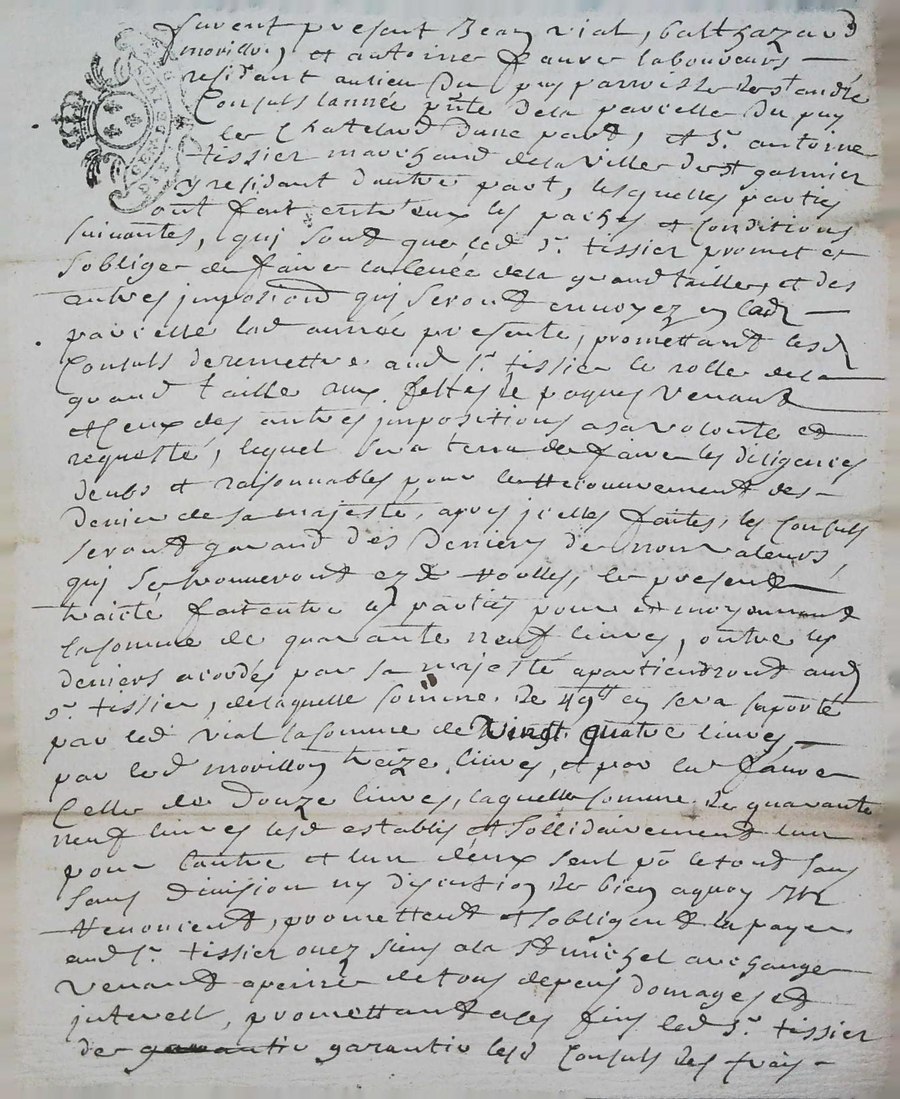 furent present Jean vial, balthazard
morillon, et antoine faure laboureurs
residant au lieu du puy parroisse de st andré
Consuls lannee pnte dela parcelle du puy
le Chatelard dune part, et Sr. antoine
tissier marchand dela ville de st galmier
y residant dautre part, lesquelles parties
ont fait entre eux les paches et Conditions
suivantes, qui sont que led Sr. tissier promet et
soblige de faire la levée dela grand taille, et des
autres impositions qui seront envoyez en lad
parcelle lad année presente, promettant lesd
Consuls de remettre aud Sr. tissier le rolle dela
grand taille aux fettes de paques venant
et Ceux des autres impositions a sa volonte et
requette, lequel sera tenu de faire les diligences
deubs et raisonnables pour le recouvrement des
Denier de sa majesté, apres icelles faites, les Consuls
seront garand des Deniers de non valeurs,
qui se trouveront ezd rolles, le present
traicté fait entre les parties pour et moyennant
la somme de quarante neuf livres, outre les
deniers acordés par sa majesté apartiendront aud
Sr. tissier, de laquelle somme de 49tt en sera suporté
par led vial la somme de vingt quatre livres,
par led morillon treize livres, et par led faure
Celle de Douze livres, laquelle somme de quarante
neuf livres lesd establis et sollidairement lun
pour lautre et lun deux seul po le tout sans
sans division ny discution de bien a quoy ils
renoncent, promettent et sobligent la payer
aud Sr. tissier ou ez siens a la St michel archange
venant a peine de tous depens domages et
interest, promettant a ces fins led Sr. tissier
de garantir garantir lesd Consuls des frais
GEN DE